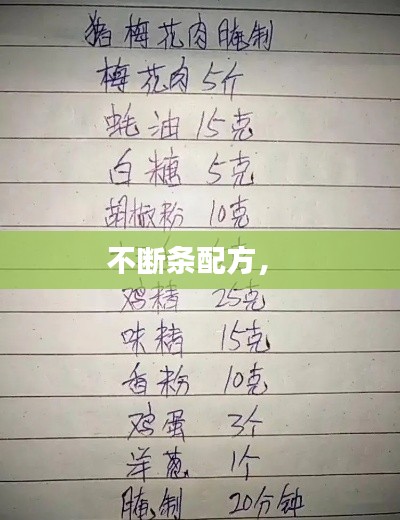 猪梅花肉腌制
梅花肉 5斤
蚝油 15克
白糖 5克
胡椒粉 10克
不断条配方，
鸡精 25克
味精 15克
香粉 10克
鸡蛋 3个
洋葱 1个
腌制 20分钟